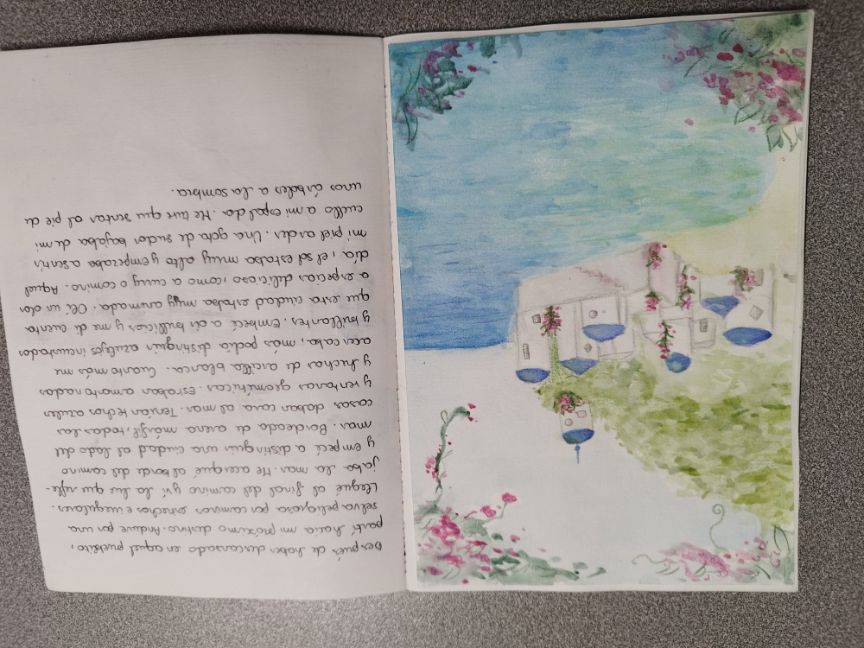 Después de haber descansado en aquel pueblito,
partí hacia mi próximo destino. Anduve por una
selva peligrosa por caminos estrechos e irregulares.
Llegué al final del camino y vi la luz que refle-
jaba la mar. Me acerqué al borde del camino
y empecé a distinguir una ciudad al lado del
mar. Bordeada de arena márfil, todas las
casas daban cara al mar. Tenían techos azules
y ventanas geométricas. Estaban amontonadas
y hechas de arcilla blanca. Cuanto más me
acercaba, más podía distinguir azulejos incrustados
y brillantes. Empecé a oír bullicios y me di cuenta
que esta ciudad estaba muy animada. Olí un olor
a especias delicioso, como a curry o comino. Aquel
día, el sol estaba muy alto y empezaba a sentir
mi piel arder. Una gota de sudor bajaba de mi
cuello a mi espalda. Me tuve que sentar al pie de
unos árboles a la sombra.